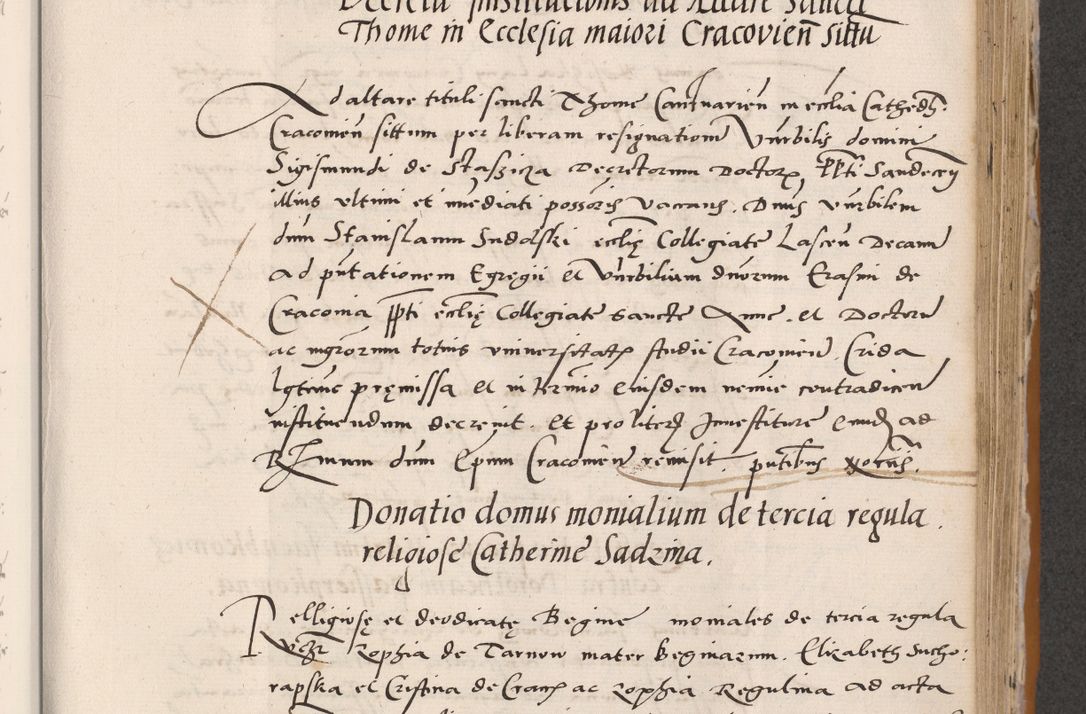 Decretu Institucionis ad Altare Sancti
Thome in Ecclesia maiori Cracovien̄ sittu
Ad altare tituli sancti Thome Cantuarien̄ in ecclīa Cathedr̄.
Cracovien̄ sittum per liberam resignationē Vnrbilis domini
Sigismundi de Stassicza Decretorum Doctorꝭ, Pp̄ti Sandecen̄
illius vltimi et imediati possoris Vacans. Dn̄s vnrbilem
dūm Stanislaum Sudolski eccl̄ię Collegiate Lascen̄ Decanū
ad pn̄tationem Egregii et Vnrbilium dnorum Erasmi de
Cracovia pp̄ti eccl̄ię Collegiate Sancte Anne. et Doctorū
ac mgrorum totius vniversitatꝭ studii Cracovien̄. Crida
lgtime pręmissa et in termino eiusdem nemie contradicen̄
instituendum decrevit. Et pro literꝭ Investiture eiusdꝭ ad
R̄mum dūm Ep̄um Cracovien̄ remisit. pn̄tibus
Donatio domus monialium de tercia regula.
religiose Catherine Sadzina.
Relligiosę et deodicatę Begine moniales de tercia regula
Zophia de Tarnow mater Beginarum. Elizabeth Sucho:
rapska et Cristina de Cracꝭ ac Zophia Regulina ad acta